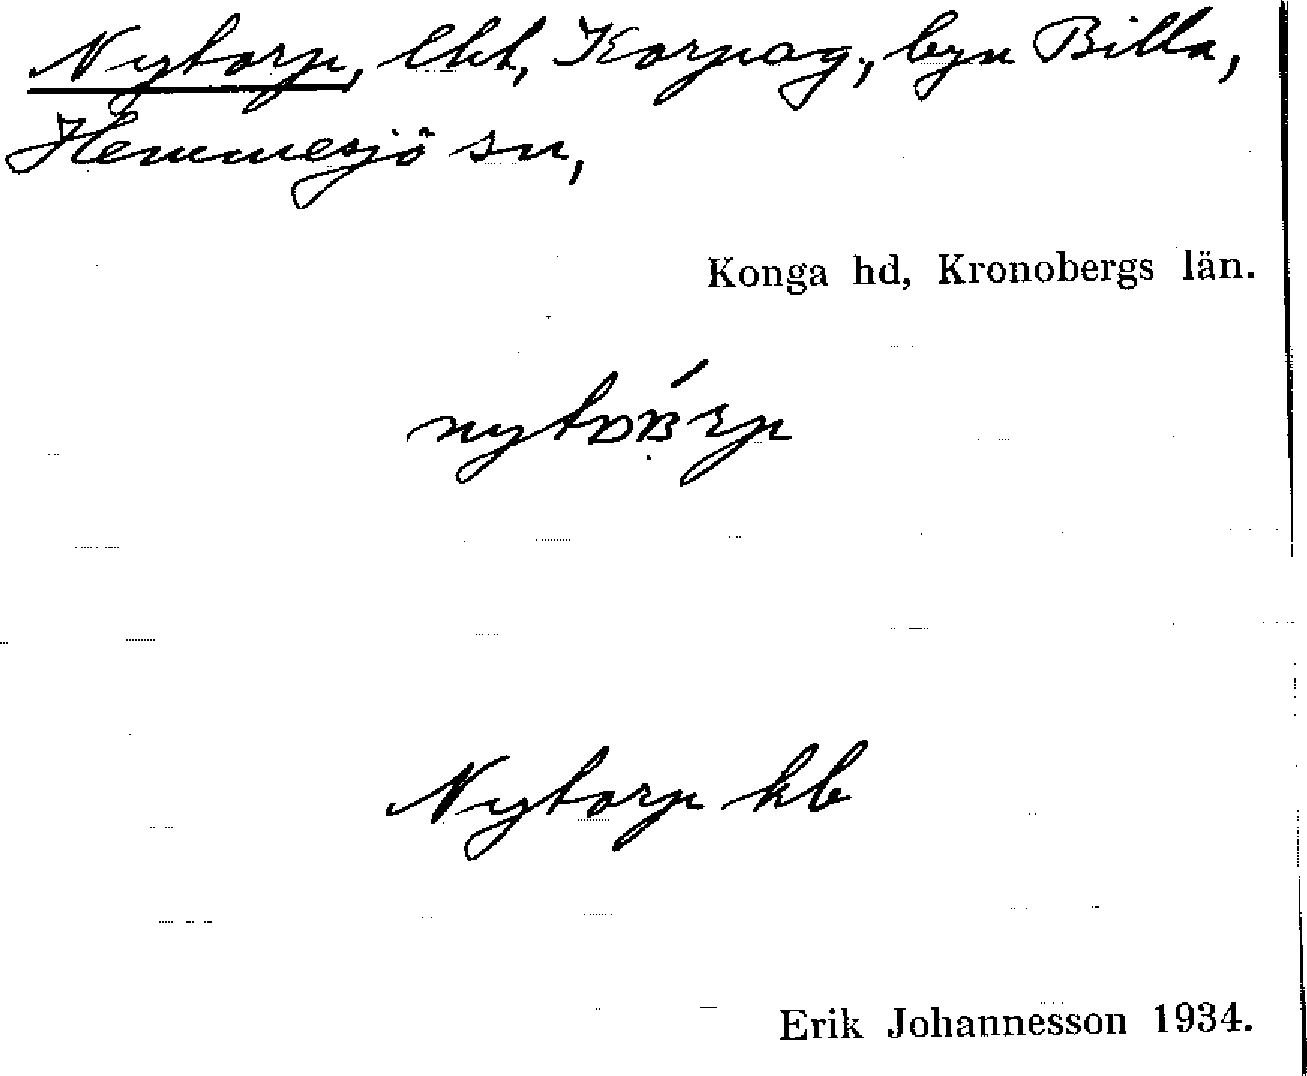 Nytorp, lht, Korpag., byn Billa,
Hemmesjö sn,
Konga hd, Kronobergs län.
Nytorp kb
Erik Johannesson 1934.